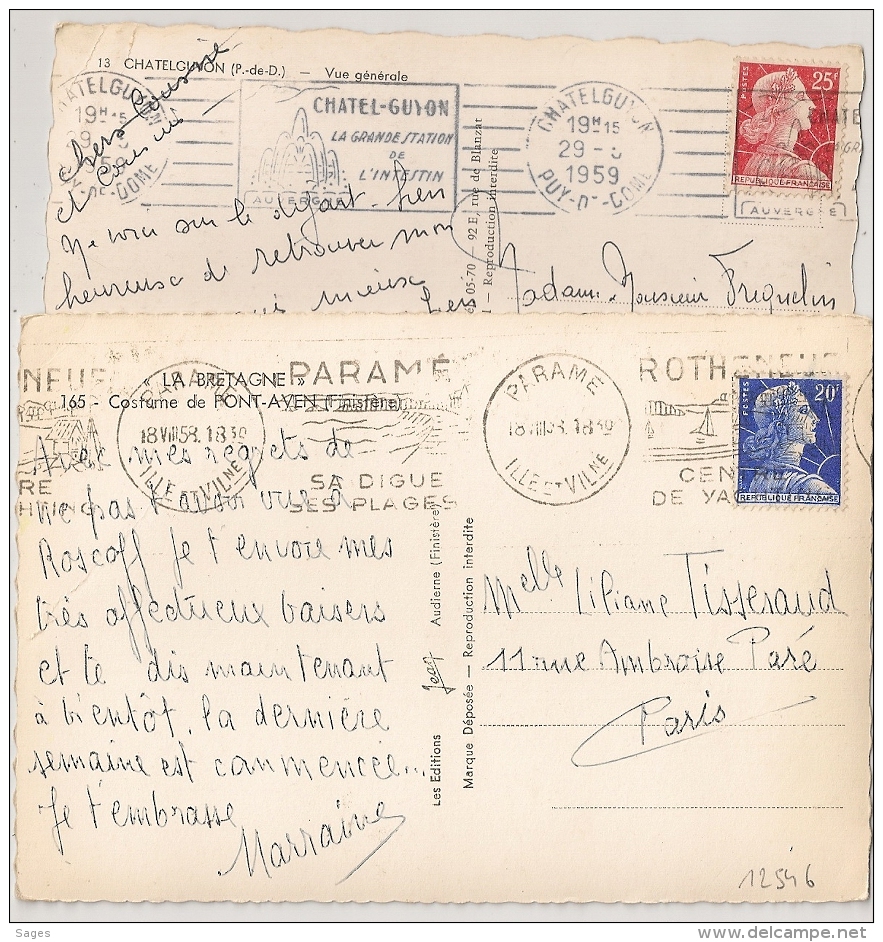 13 CHATELGUYON (P.-de-D.) — Vue générale
CHATELGUYON
19H15
29 -
1959
PUY-DE-DOME
CHATEL-GUYON
LA GRANDE STATION
DE
L'INTESTIN
AUVERGNE
CHATELGUYON
19H15
29 -
1959
PUY-DE-DOME
POSTES
25F
REPUBLIQUE FRANÇAISE
AUVERGNE
05-70 — 92 E, rue de Blanzat
Reproduction interdite
chers Cousine
et Cousin
Me voici sur le départ bien
heureuse de retrouver mon
mieux
Madame Monsieur
« LA BRETAGNE »
165 - Costume de PONT-AVEN (Finistère)
PARAMÉ
SA DIGUE
SES PLAGES
PARAME
18 VIII 58. 18 30
ILLE ET VILNE
PARAME
18 VIII 58. 18 30
ILLE ET VILNE
ROTHENEUF
CENTRE
DE YACHTING
POSTES
20F
REPUBLIQUE FRANÇAISE
Avec mes regrets de
ne pas t'avoir vue à
Roscoff je t'envoie mes
très affectueux baisers
et te dis maintenant
à bientôt, la dernière
semaine est commencée...
Je t'embrasse
Marraine
Les Editions Jean Audierne (Finistère)
Marque Déposée — Reproduction interdite
Melle Liliane Tisseraud
11 rue Ambroise Paré
Paris
12546
Sages
delcampe.net